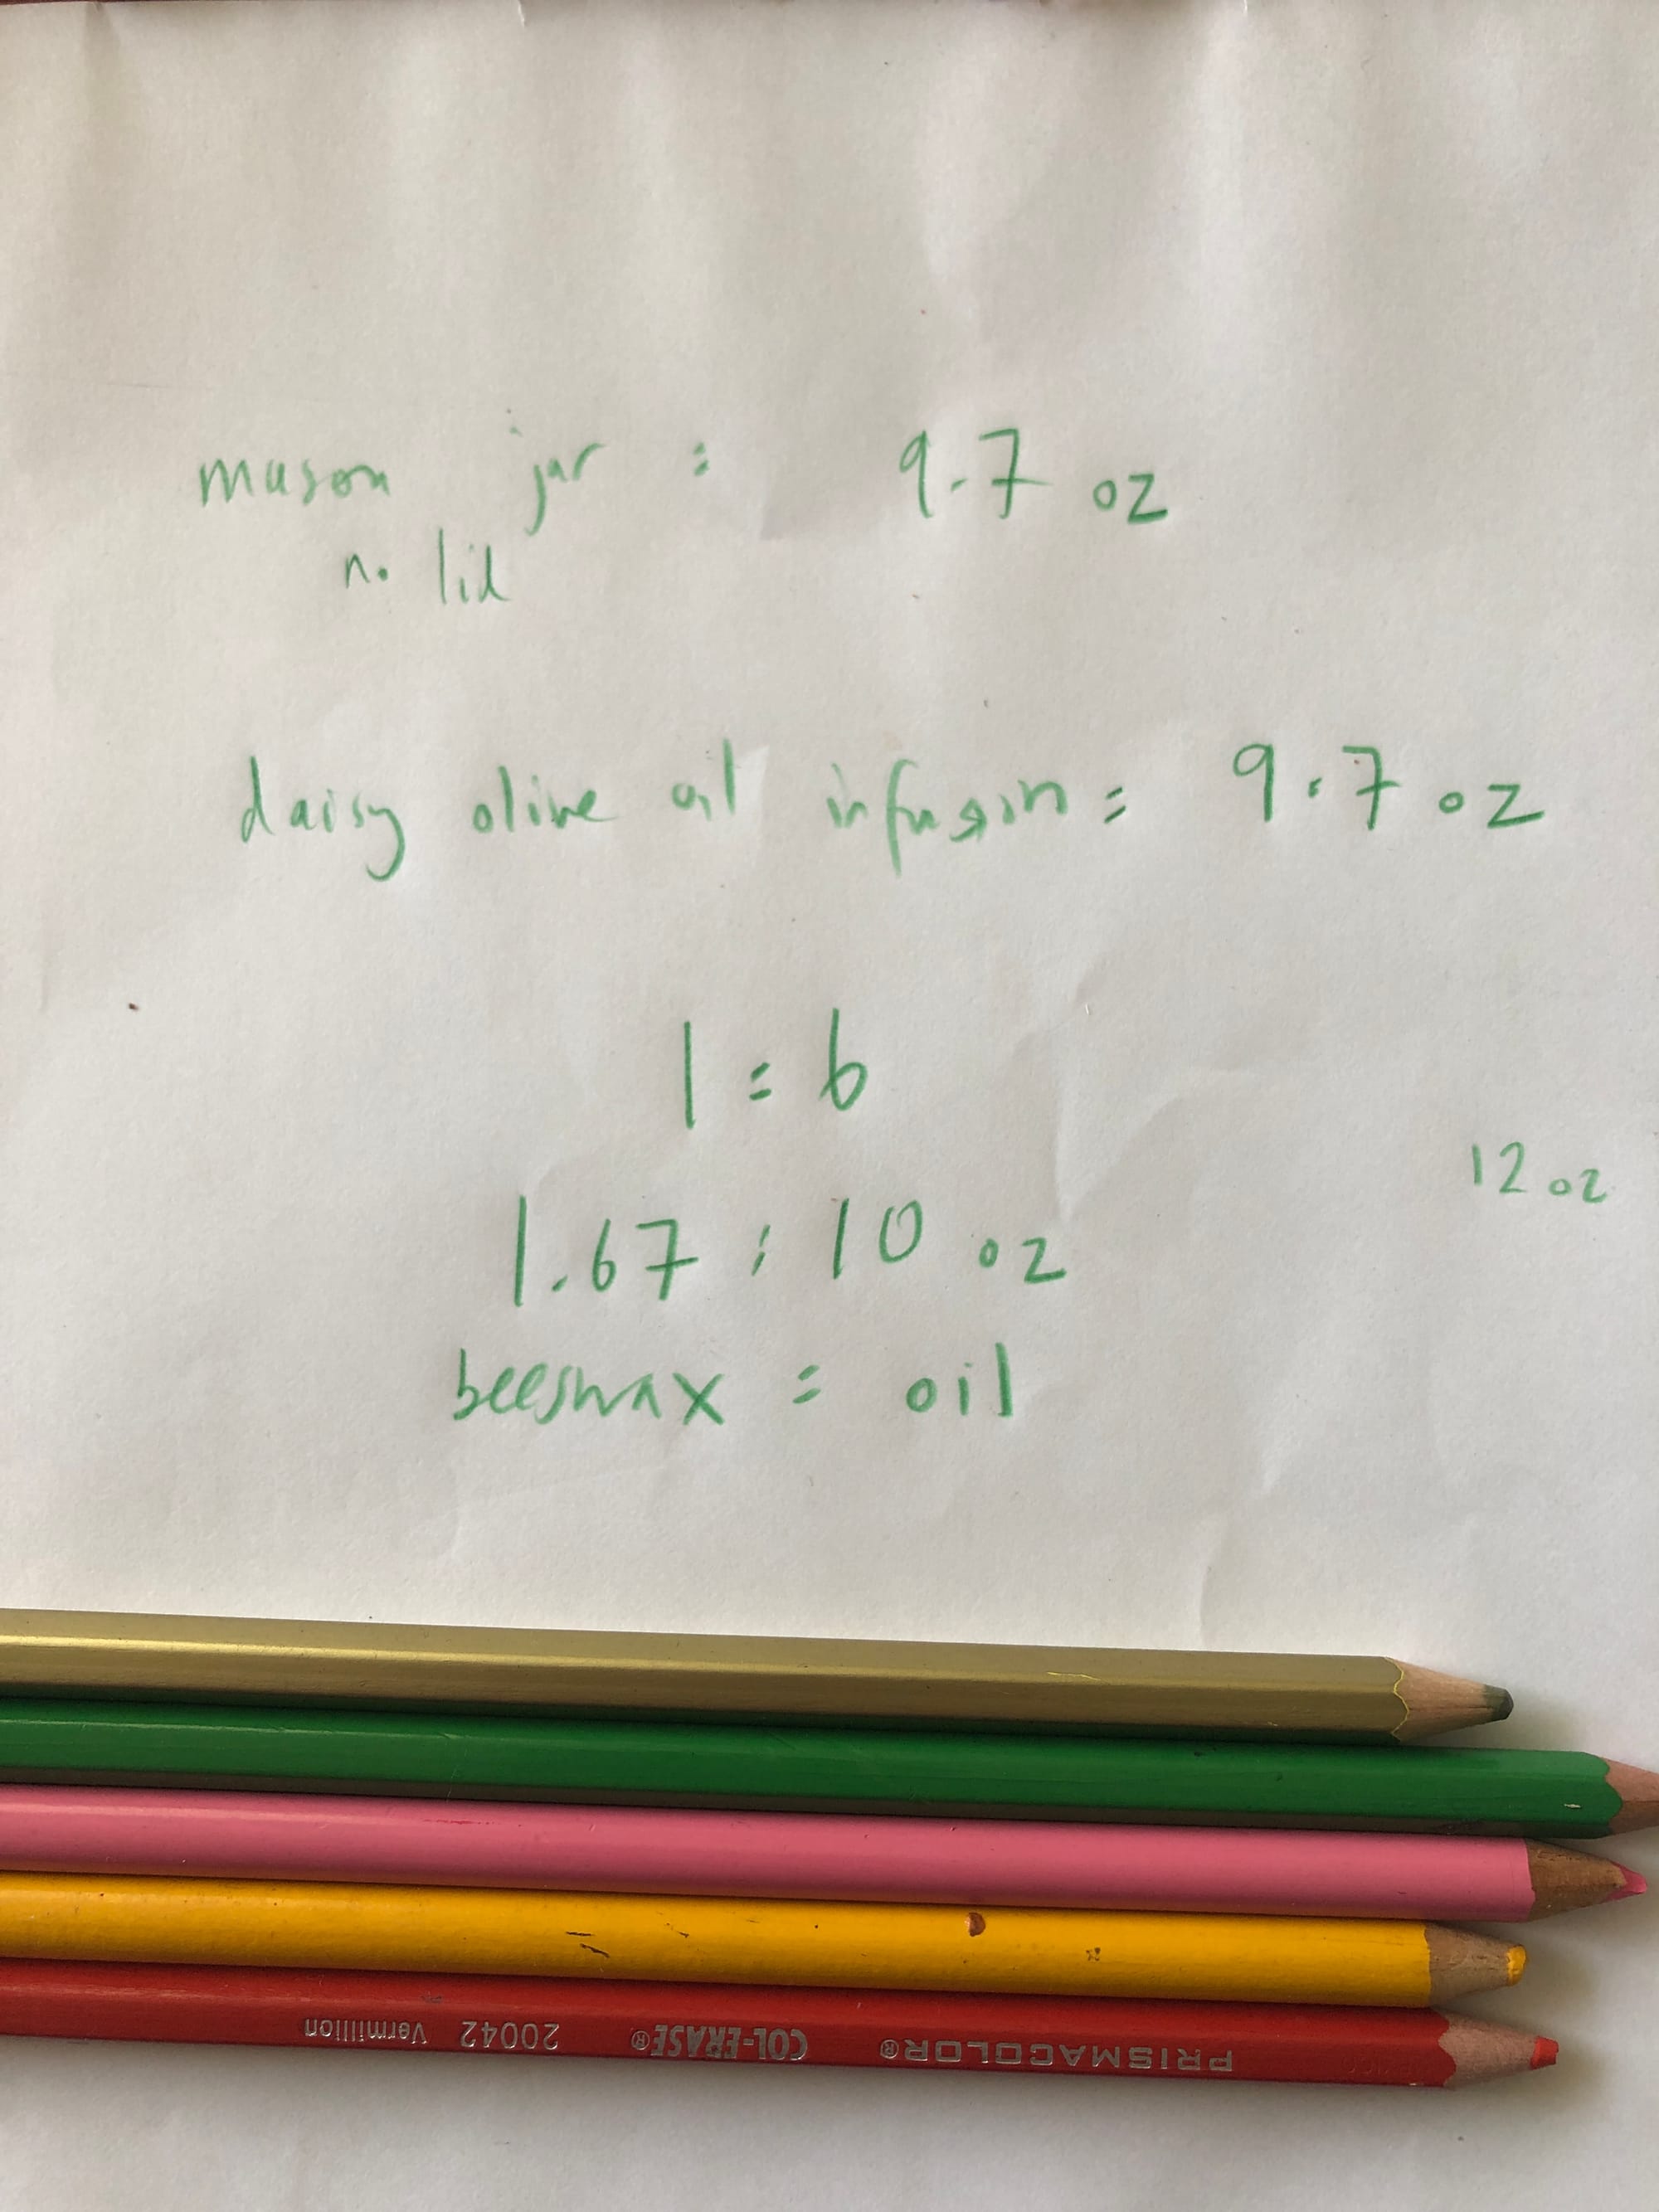 mason jar = 9.7 oz
no lid
daisy olive oil infusion = 9.7 oz
1 = 6
12 oz
1.67 : 10 oz
beeswax = oil
PRISMACOLOR® COL-ERASE® 20042 Vermillion